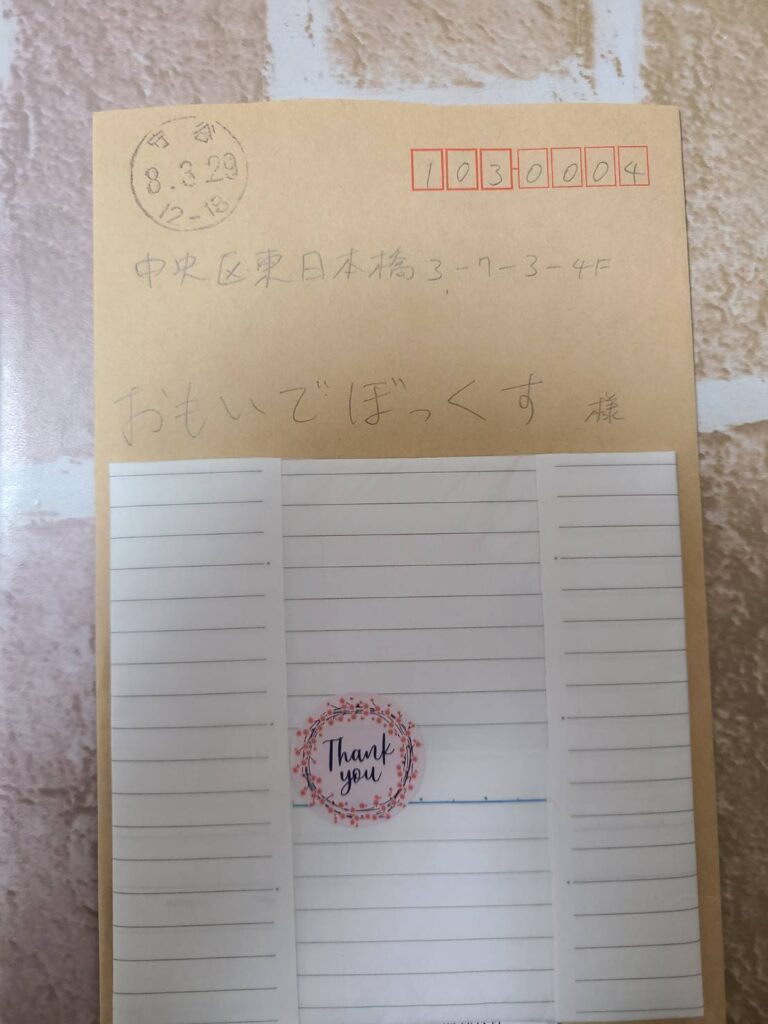 8.3.29
12-18
103-0004
中央区東日本橋3-7-3-4F
おもいでぼっくす 様
Thank
you